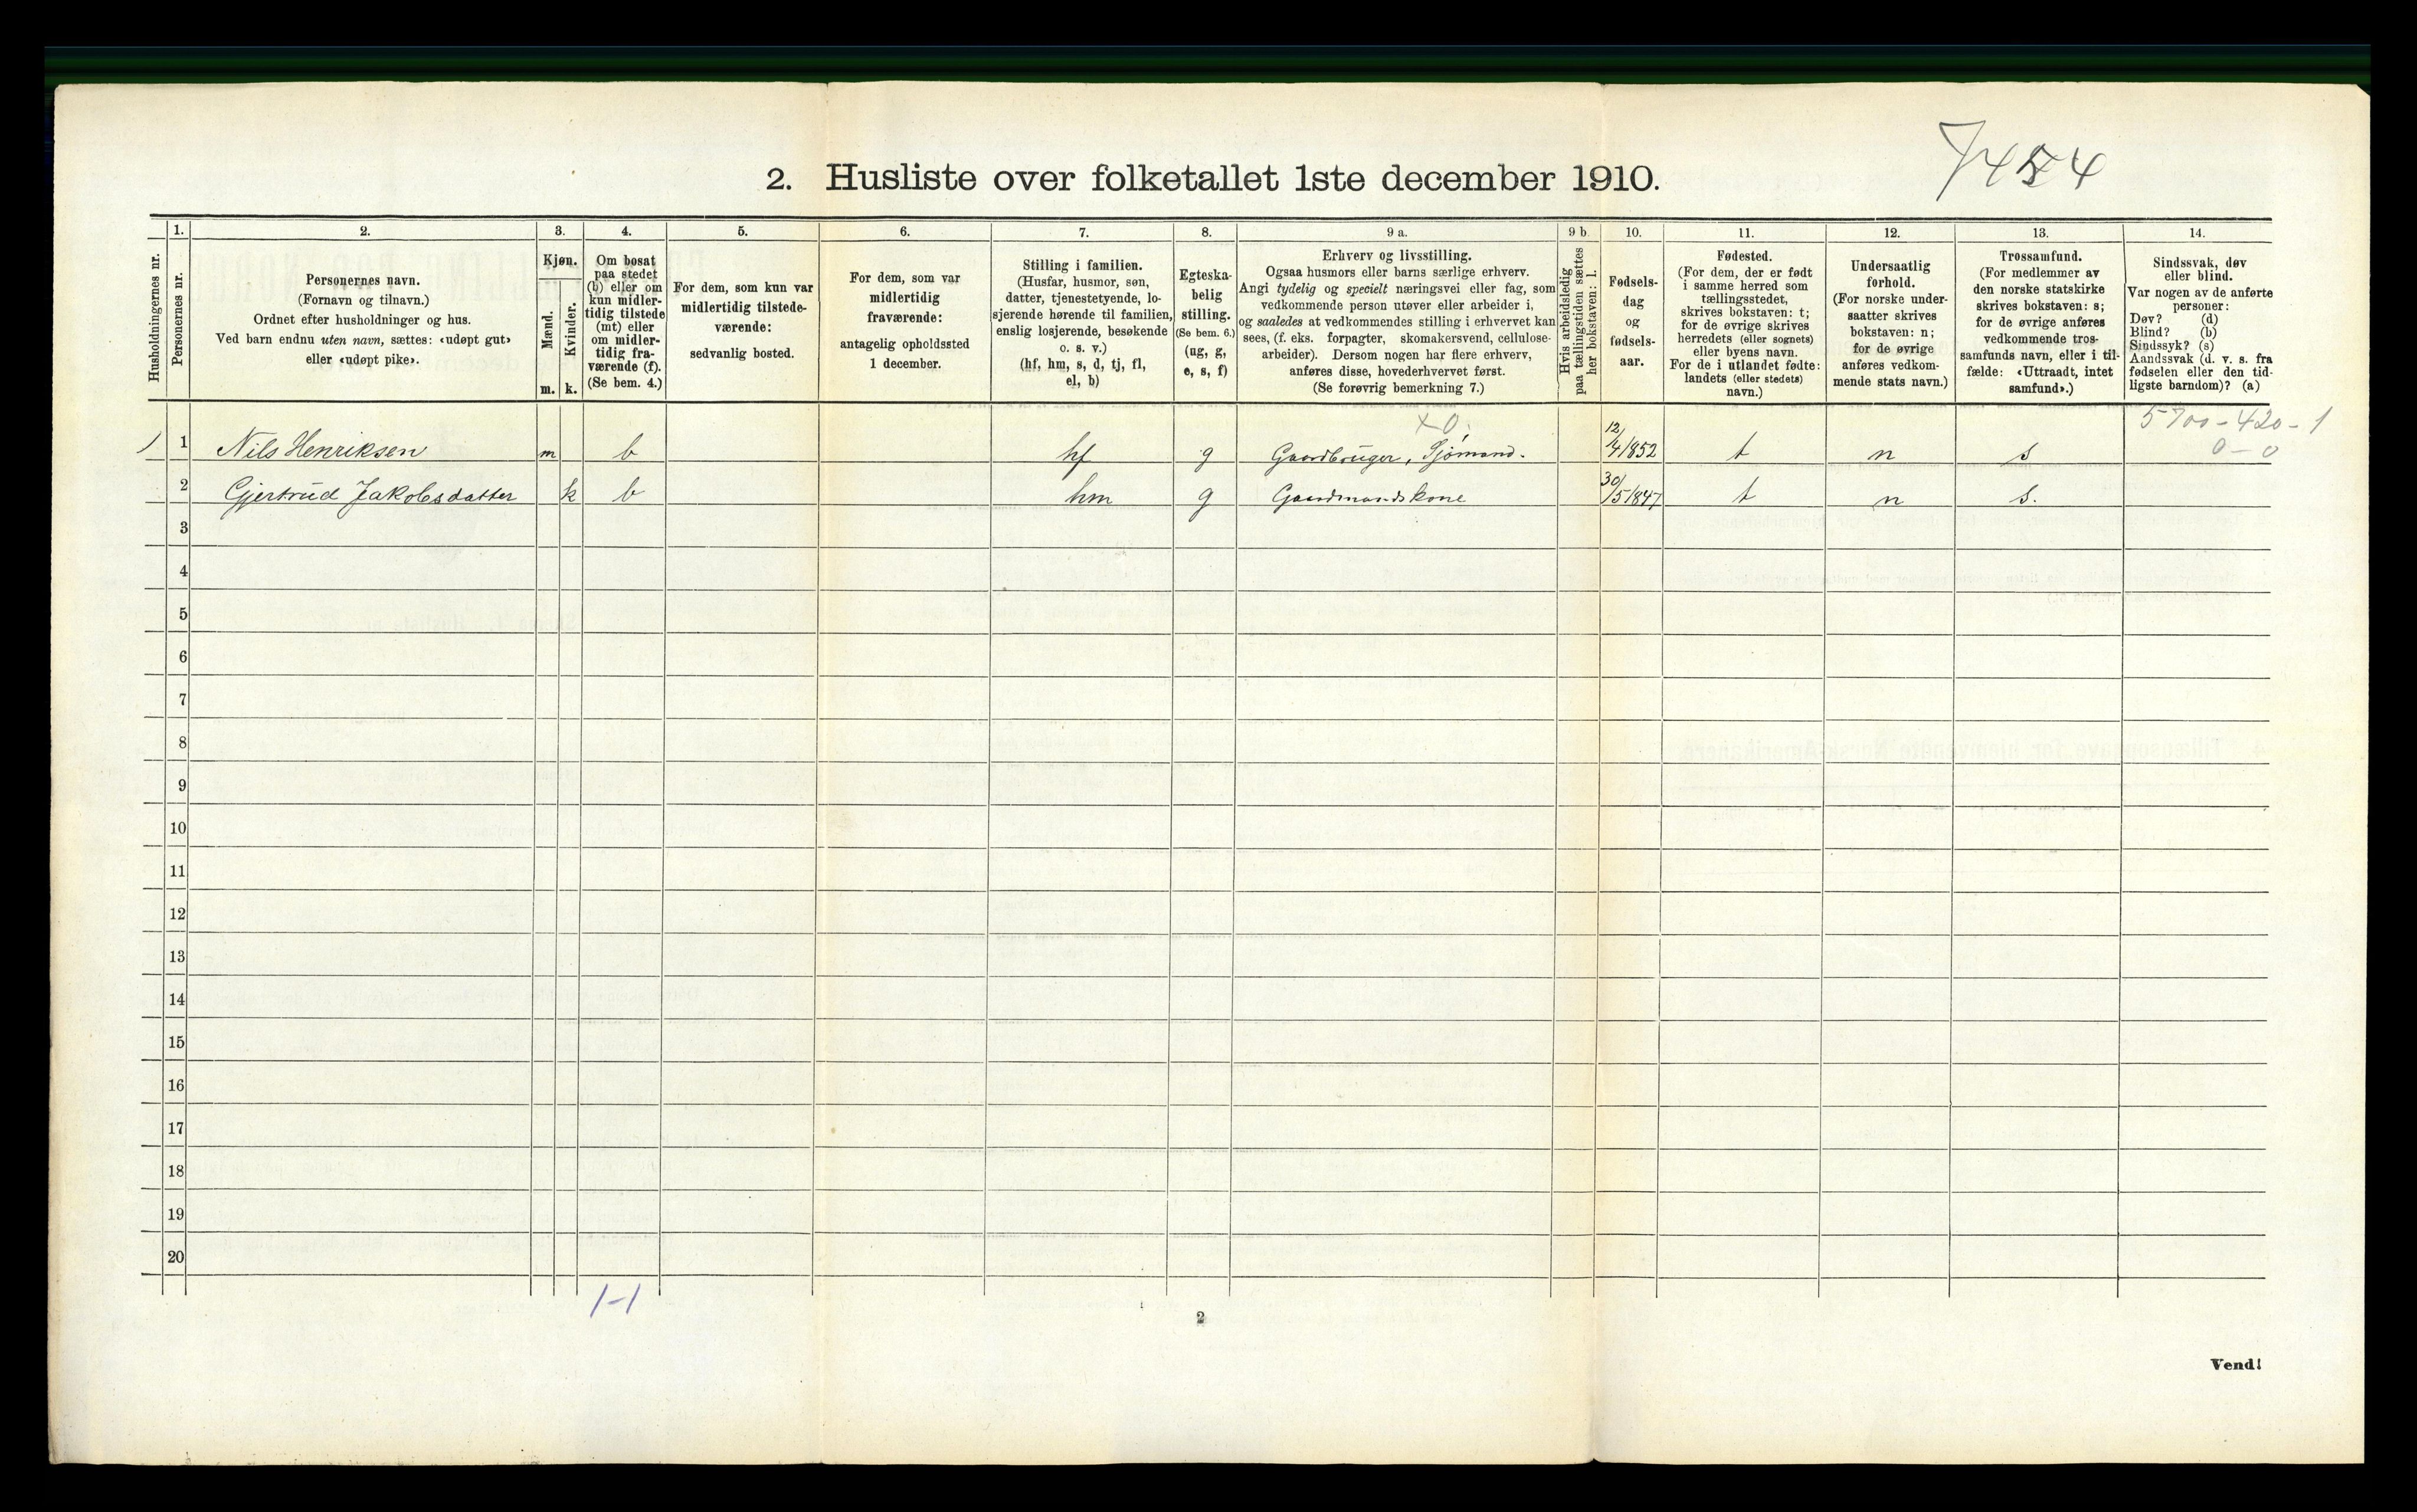 7454
2. Husliste over folketallet 1ste december 1910.
Husholdningernes nr.
1.
Personernes nr.
2.
Personernes navn.
(Fornavn og tilnavn.)
Ordnet efter husholdninger og hus.
Ved barn endnu uten navn, sættes: «udøpt gut»
eller «udøpt pike».
3.
Kjøn.
Mænd.
Kvinder.
m. k.
4.
Om bosat
paa stedet
(b) eller om
kun midler-
tidig tilstede
(mt) eller
om midler-
tidig fra-
værende (f).
(Se bem. 4.)
5.
For dem, som kun var
midlertidig tilstede-
værende:
sedvanlig bosted.
6.
For dem, som var
midlertidig
fraværende:
antagelig opholdssted
1 december.
7.
Stilling i familien.
(Husfar, husmor, søn,
datter, tjenestetyende, lo-
sjerende hørende til familien,
enslig losjerende, besøkende
o. s. v.)
(hf, hm, s, d, tj, fl,
el, b)
8.
Egteska-
belig
stilling.
(Se bem. 6.)
(ug, g,
e, s, f)
9 a.
Erhverv og livsstilling.
Ogsaa husmors eller barns særlige erhverv.
Angi tydelig og specielt næringsvei eller fag, som
vedkommende person utøver eller arbeider i,
og saaledes at vedkommendes stilling i erhvervet kan
sees, (f. eks. forpagter, skomakersvend, cellulose-
arbeider). Dersom nogen har flere erhverv,
anføres disse, hovederhvervet først.
(Se forøvrig bemerkning 7.)
9 b.
Hvis arbeidsledig
paa tællingstiden sættes
her bokstaven: l.
10.
Fødsels-
dag
og
fødsels-
aar.
11.
Fødested.
(For dem, der er født
i samme herred som
tællingsstedet,
skrives bokstaven: t;
for de øvrige skrives
herredets (eller sognets)
eller byens navn.
For de i utlandet fødte:
landets (eller stedets)
navn.)
12.
Undersaatlig
forhold.
(For norske under-
saatter skrives
bokstaven: n;
for de øvrige
anføres vedkom-
mende stats navn.)
13.
Trossamfund.
(For medlemmer av
den norske statskirke
skrives bokstaven: s;
for de øvrige anføres
vedkommende tros-
samfunds navn, eller i til-
fælde: «Uttraadt, intet
samfund».)
14.
Sindssvak, døv
eller blind.
Var nogen av de anførte
personer:
Døv? (d)
Blind? (b)
Sindssyk? (s)
Aandssvak (d. v. s. fra
fødselen eller den tid-
ligste barndom)? (a)
x 0. 5700 - 420 - 1
1 1 Nils Henriksen m b hf g Gaardbruger, Sjømand. 12/4 1852 t n s 0 - 0
2 Gjertrud Jakobsdatter k b hm g Gaardmandskone 30/5 1847 t n s.
3
4
5
6
7
8
9
10
11
12
13
14
15
16
17
18
19
20
1-1
2
Vend!